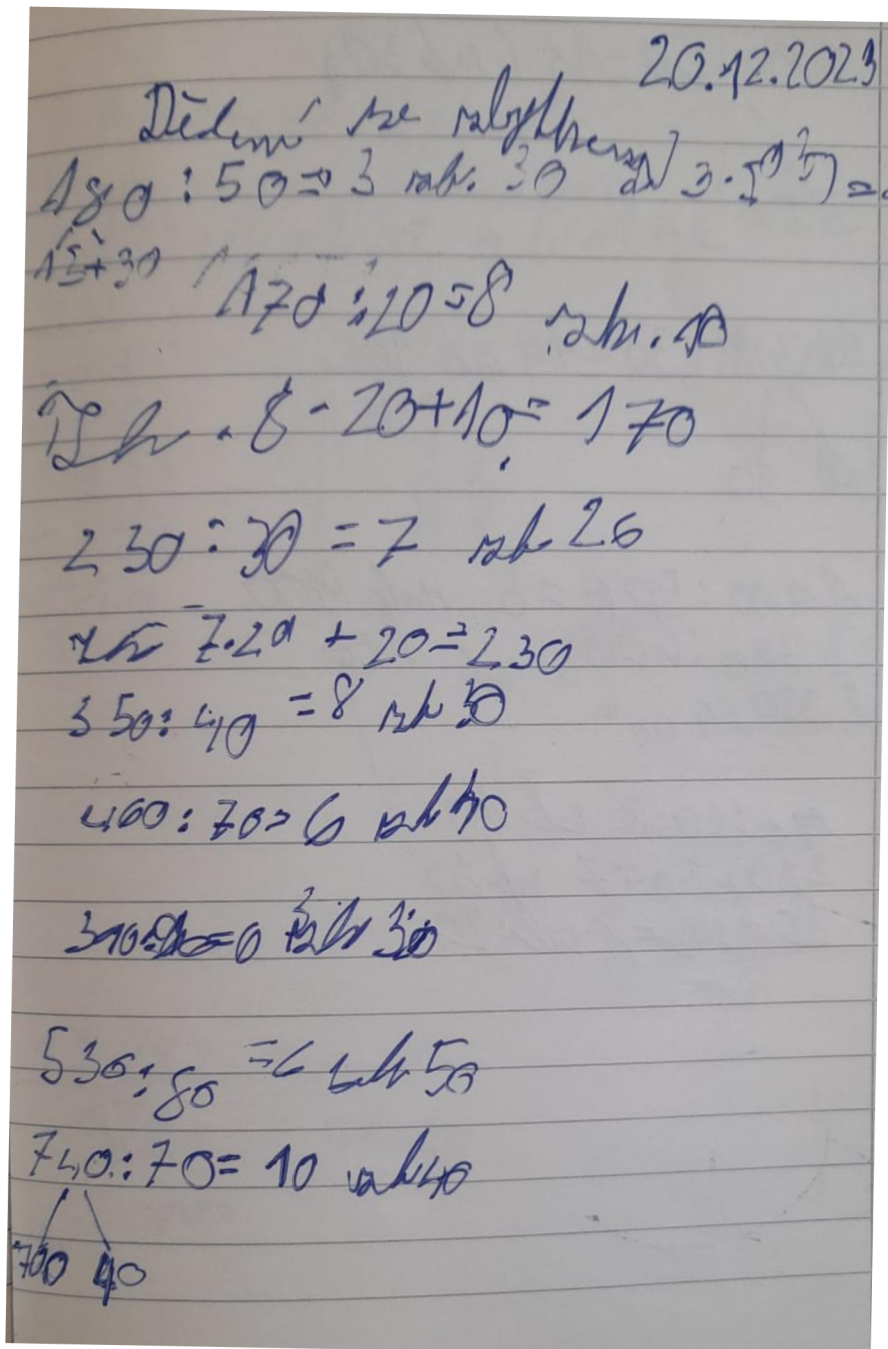 20.12.2023
Dělení se zbytkem
180 : 50 = 3 zb. 30 3 · 50
15 + 30
170 : 20 = 8 zb. 10
Zk. 8 · 20 + 10 = 170
230 : 30 = 7 zb. 20
zk 7 · 20 + 20 = 230
350 : 40 = 8 zb 30
460 : 70 = 6 zb 40
310 zb 30
530 : 80 = 6 zb 50
740 : 70 = 10 zb 40
700 40